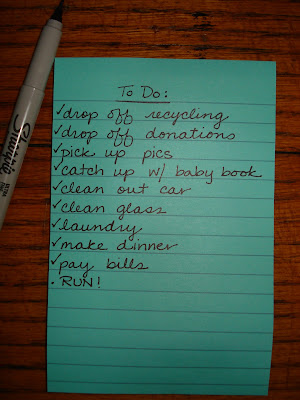 To Do:
✓drop off recycling
✓drop off donations
✓pick up pics
✓catch up w/ baby book
✓clean out car
✓clean glass
✓laundry
✓make dinner
✓pay bills
• RUN!
Sharpie